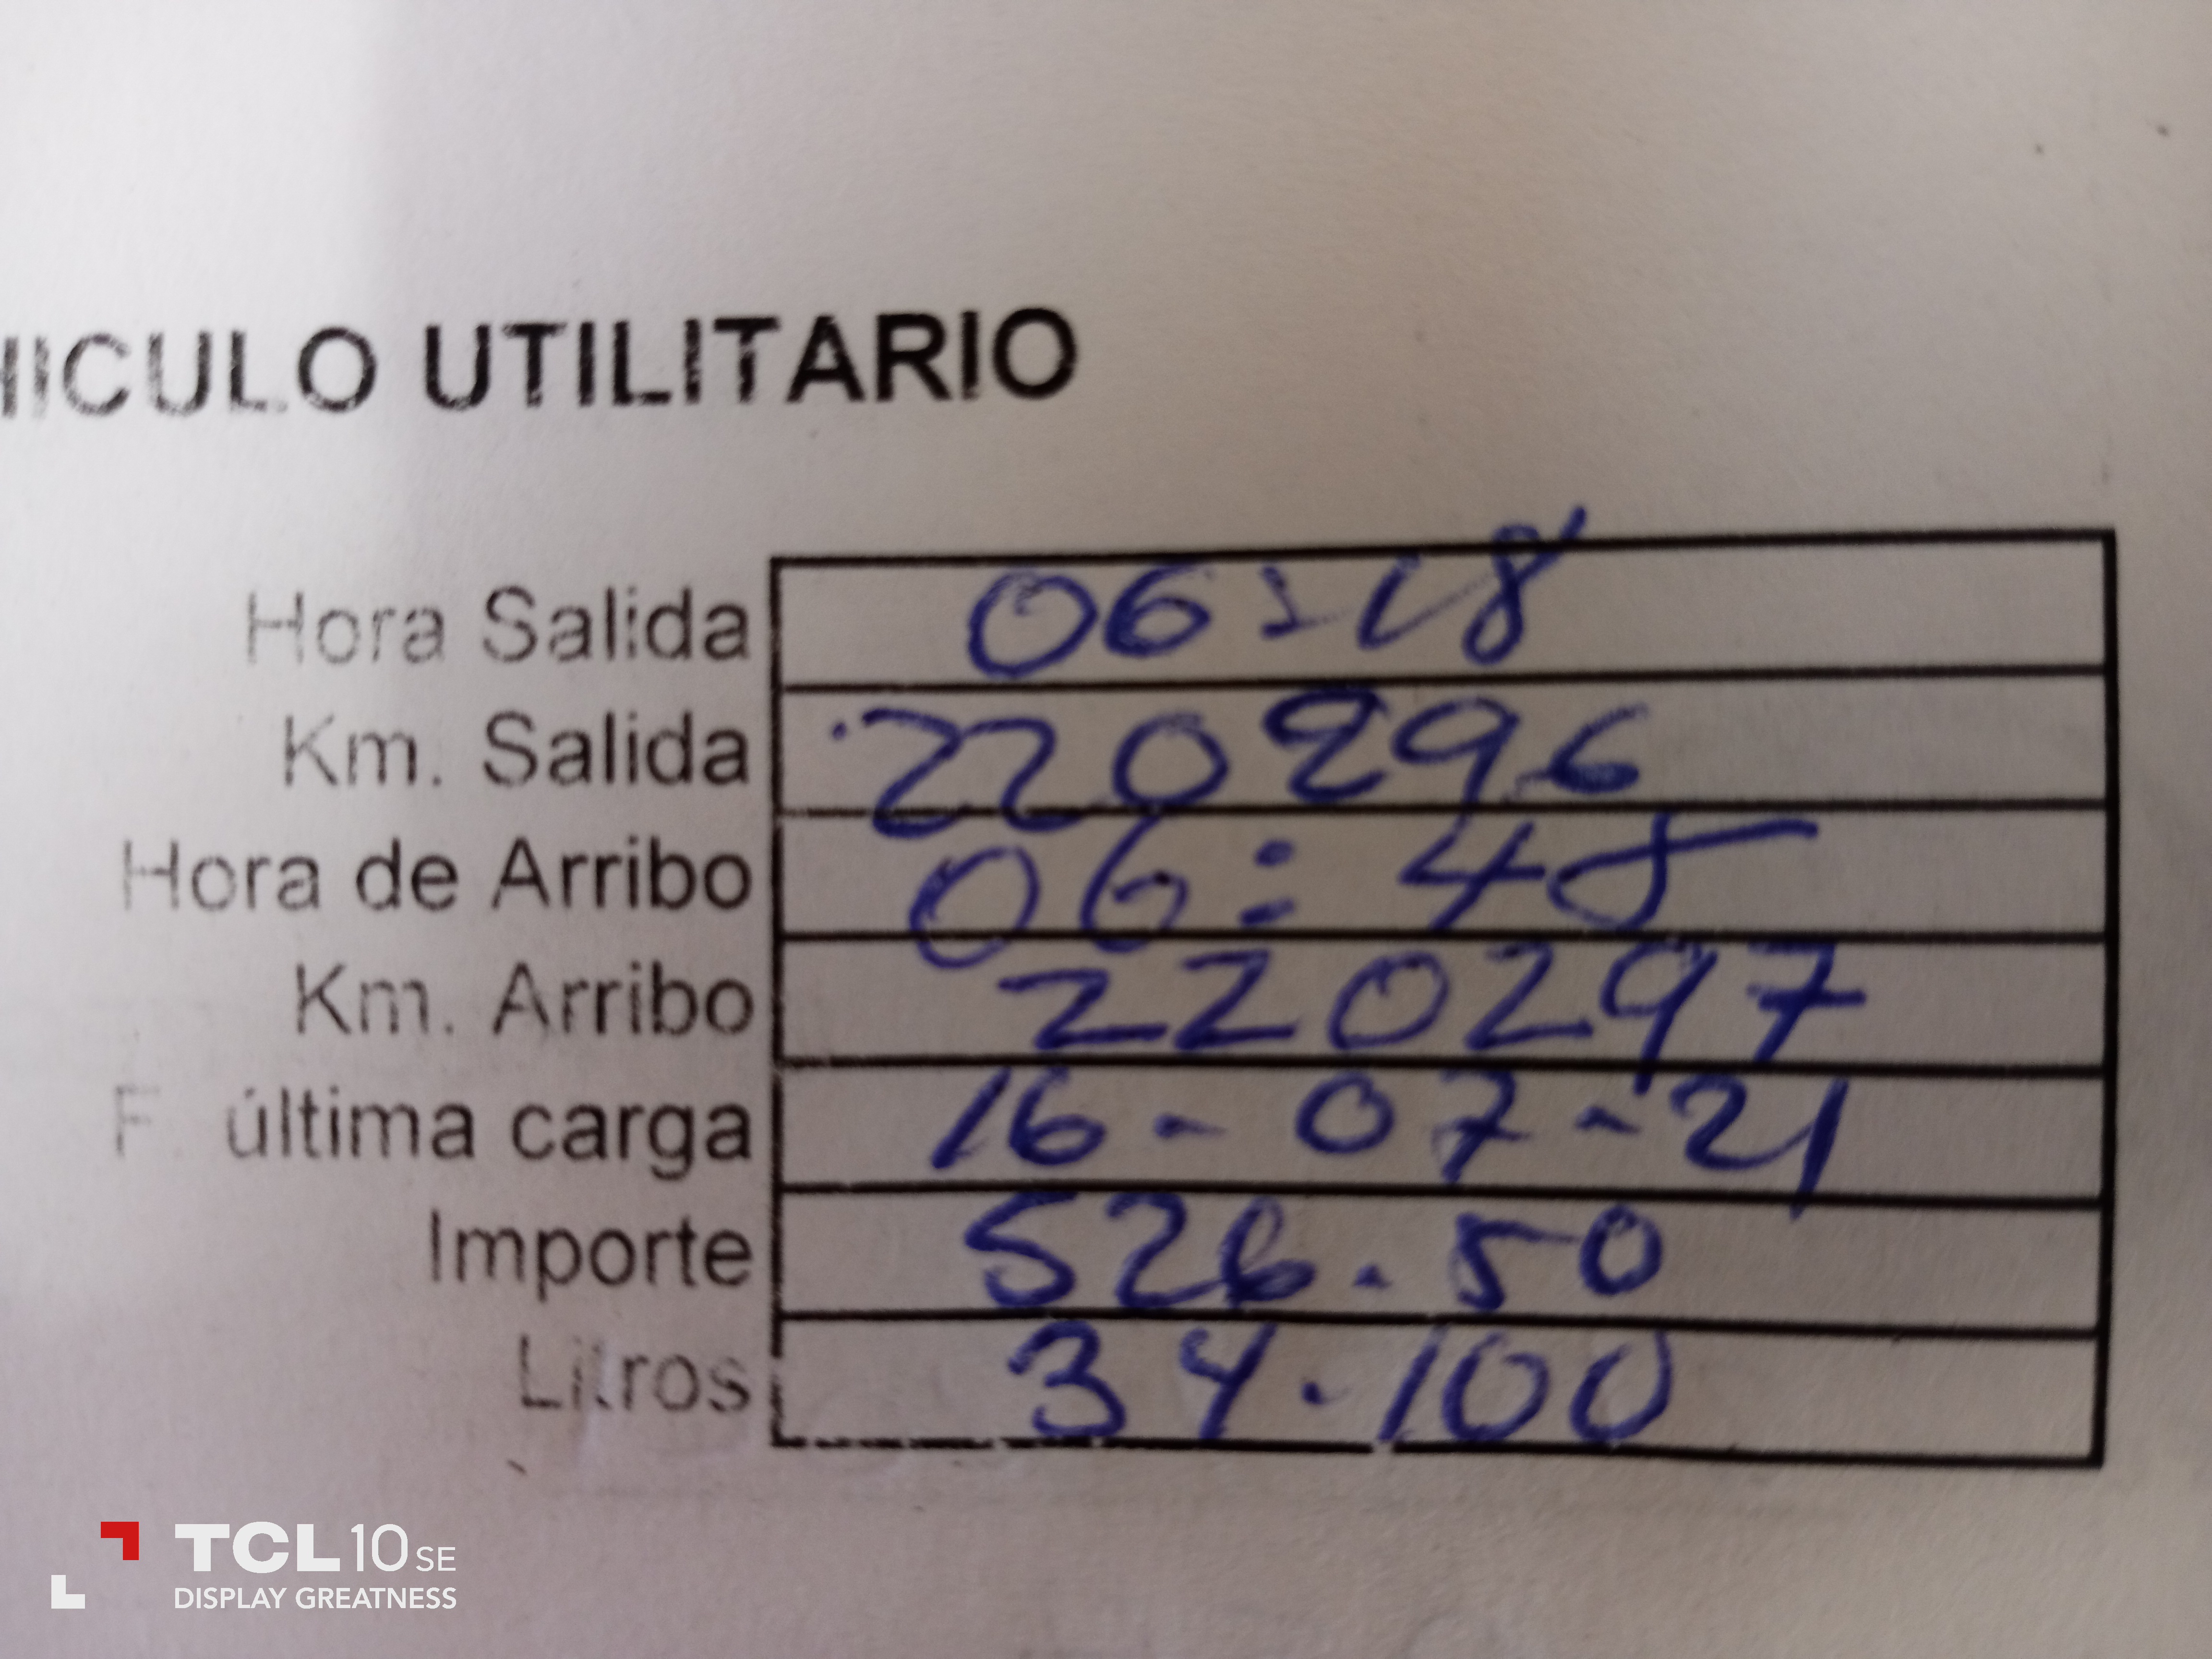 HICULO UTILITARIO
Hora Salida 06:18
Km. Salida 220296
Hora de Arribo 06:48
Km. Arribo 220297
F. última carga 16-07-21
Importe 526.50
Litros 34.100
TCL 10 SE
DISPLAY GREATNESS